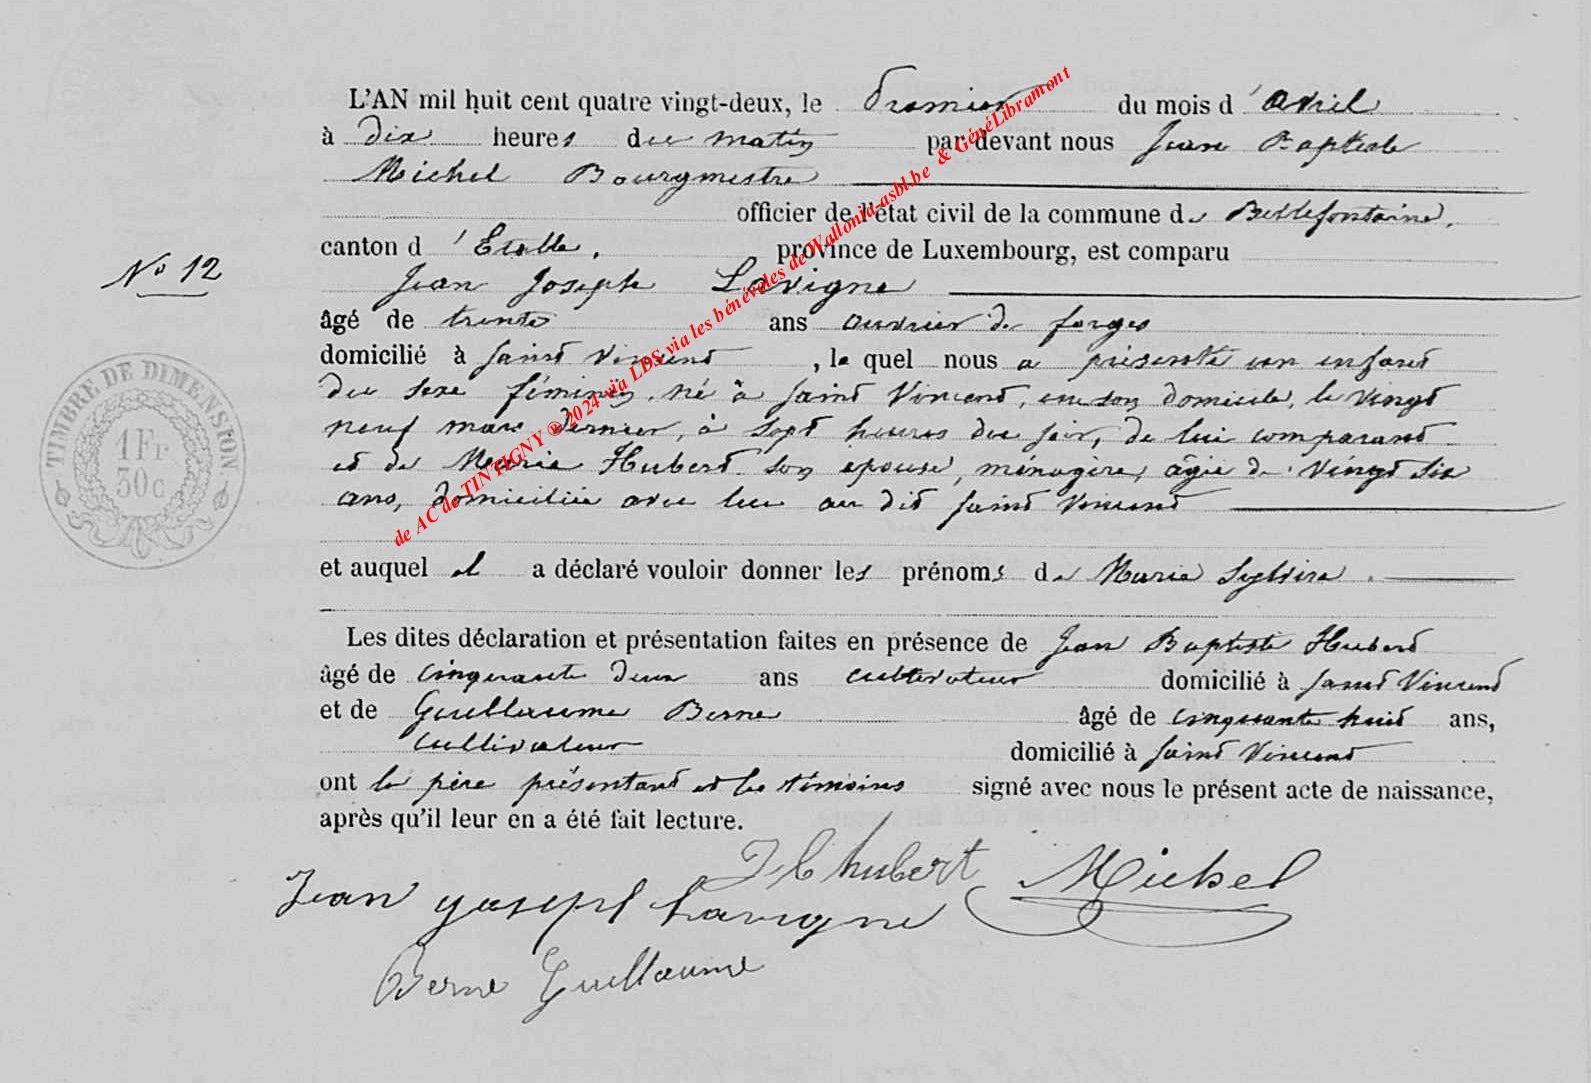 L'AN mil huit cent quatre vingt-deux, le Premier du mois d'Avril
à dix heures du matin par devant nous Jean Baptiste
Michel Bourgmestre
officier de l'état civil de la commune de Bellefontaine,
canton d'Etalle, province de Luxembourg, est comparu
No 12
Jean Joseph Lavigne
âgé de trente ans ouvrier de forges
domicilié à Saint Vincent, lequel nous a présenté un enfant
du sexe féminin, né à Saint Vincent, en son domicile, le vingt
neuf mars dernier, à sept heures du soir, de lui comparant
et de Marie Hubert son épouse, ménagère, âgée de vingt six
ans, domiciliée avec lui au dit Saint Vincent
et auquel il a déclaré vouloir donner les prénoms de Marie Sylvie.
Les dites déclaration et présentation faites en présence de Jean Baptiste Hubert
âgé de cinquante deux ans cultivateur domicilié à Saint Vincent
et de Guillaume Berne âgé de cinquante huit ans,
cultivateur domicilié à Saint Vincent
ont le père présentant et les témoins signé avec nous le présent acte de naissance,
après qu'il leur en a été fait lecture.
J B hubert Michel
Jean joseph Lavigne
Berne Guillaume
TIMBRE DE DIMENSION
1 Fr
30 c
de AC de TINTIGNY ® 2024 via LDS via les bénévoles de Wallonia-asbl.be & GénéLibramont